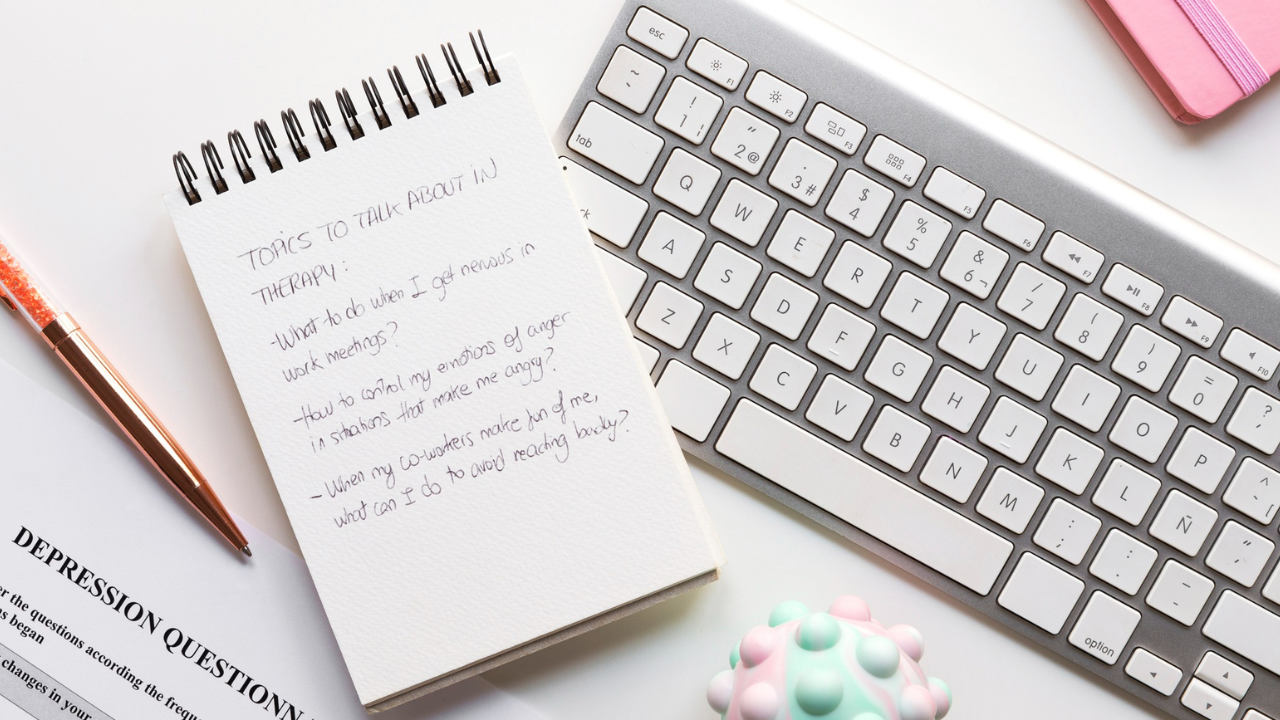 TOPICS TO TALK ABOUT IN
THERAPY:
-What to do when I get nervous in
work meetings?
-How to control my emotions of anger
in situations that make me angry?
- When my co-workers make fun of me,
what can I do to avoid reacting badly?
DEPRESSION QUESTIONN
er the questions according the frequ
s began
changes in your
esc
F1
F2
F3
F4
F5
F6
F7
F8
F9
F10
~
! 1
" 2 @
· 3 #
$ 4
% 5
& 6 ¬
/ 7
( 8
) 9
= 0
? '
tab
Q W E R T Y U I O P ^ [
A S D F G H J K L Ñ
Z X C V B N M ; , : . _ -
option